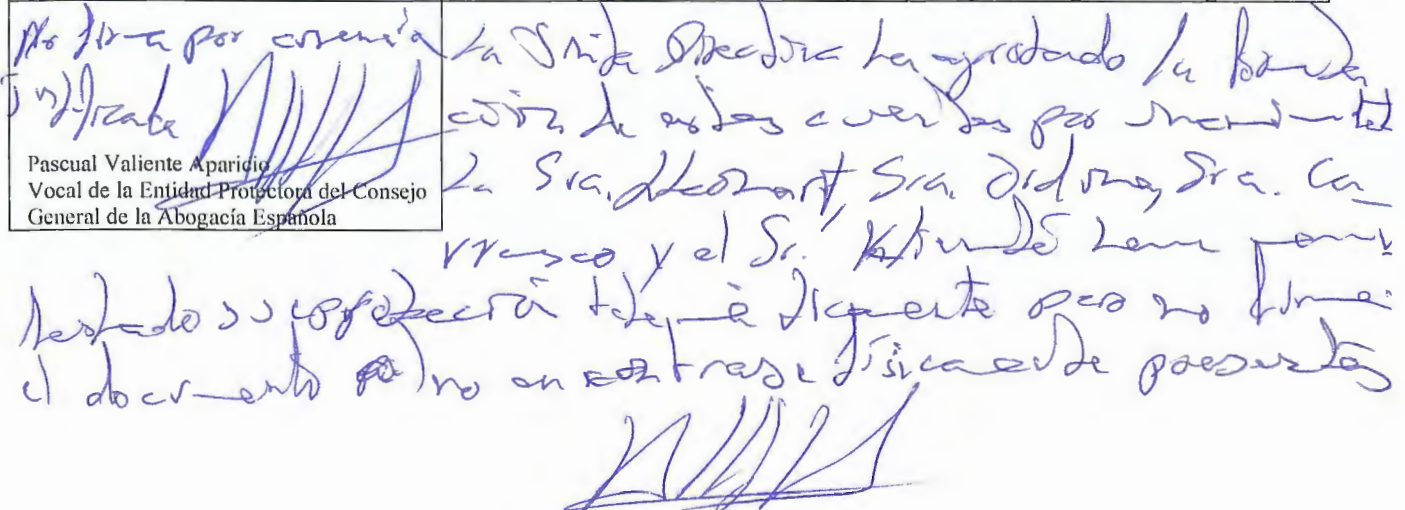 No firma por ausencia
justificada
Pascual Valiente Aparicio
Vocal de la Entidad Protectora del Consejo
General de la Abogacía Española
La Junta Directiva ha aprobado la formula
ción de estas cuentas por unanimidad
La Sra. Sra. Sra. Ca_
rrasco y el Sr. han mani
festado su aprobación telemáticamente pero no firman
el documento por no encontrarse físicamente presentes